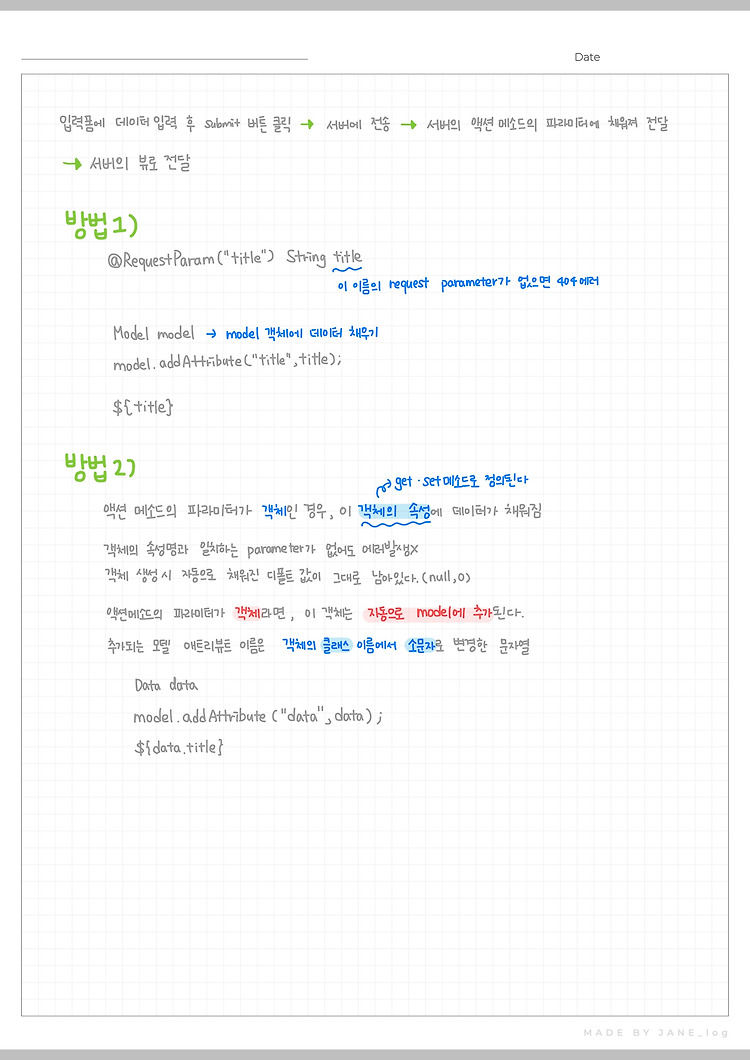 Date
입력폼에 데이터 입력 후 submit 버튼 클릭 → 서버에 전송 → 서버의 액션 메소드의 파라미터에 채워져 전달
→ 서버의 뷰로 전달
방법 1)
@RequestParam("title") String title
이 이름의 request parameter가 없으면 404에러
Model model → model 객체에 데이터 채우기
model.addAttribute("title",title);
${title}
방법 2)
get · set메소드로 정의된다
액션 메소드의 파라미터가 객체인 경우, 이 객체의 속성에 데이터가 채워짐
객체의 속성명과 일치하는 parameter가 없어도 에러발생X
객체 생성시 자동으로 채워진 디폴트 값이 그대로 남아있다.(null,0)
액션메소드의 파라미터가 객체라면, 이 객체는 자동으로 model에 추가된다.
추가되는 모델 애트리뷰트 이름은 객체의 클래스 이름에서 소문자로 변경한 문자열
Data data
model.addAttribute ("data",data);
${data.title}
MADE BY JANE_log